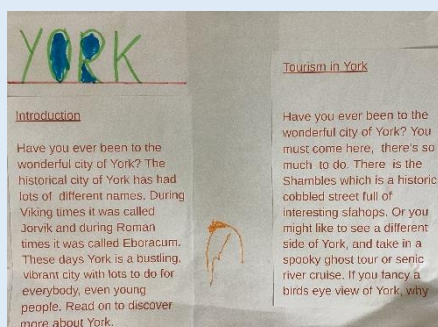 YORK
Introduction
Have you ever been to the
wonderful city of York? The
historical city of York has had
lots of different names. During
Viking times it was called
Jorvik and during Roman
times it was called Eboracum.
These days York is a bustling,
vibrant city with lots to do for
everybody, even young
people. Read on to discover
more about York.
Tourism in York
Have you ever been to the
wonderful city of York? You
must come here, there's so
much to do. There is the
Shambles which is a historic
cobbled street full of
interesting sfahops. Or you
might like to see a different
side of York, and take in a
spooky ghost tour or senic
river cruise. If you fancy a
birds eye view of York, why